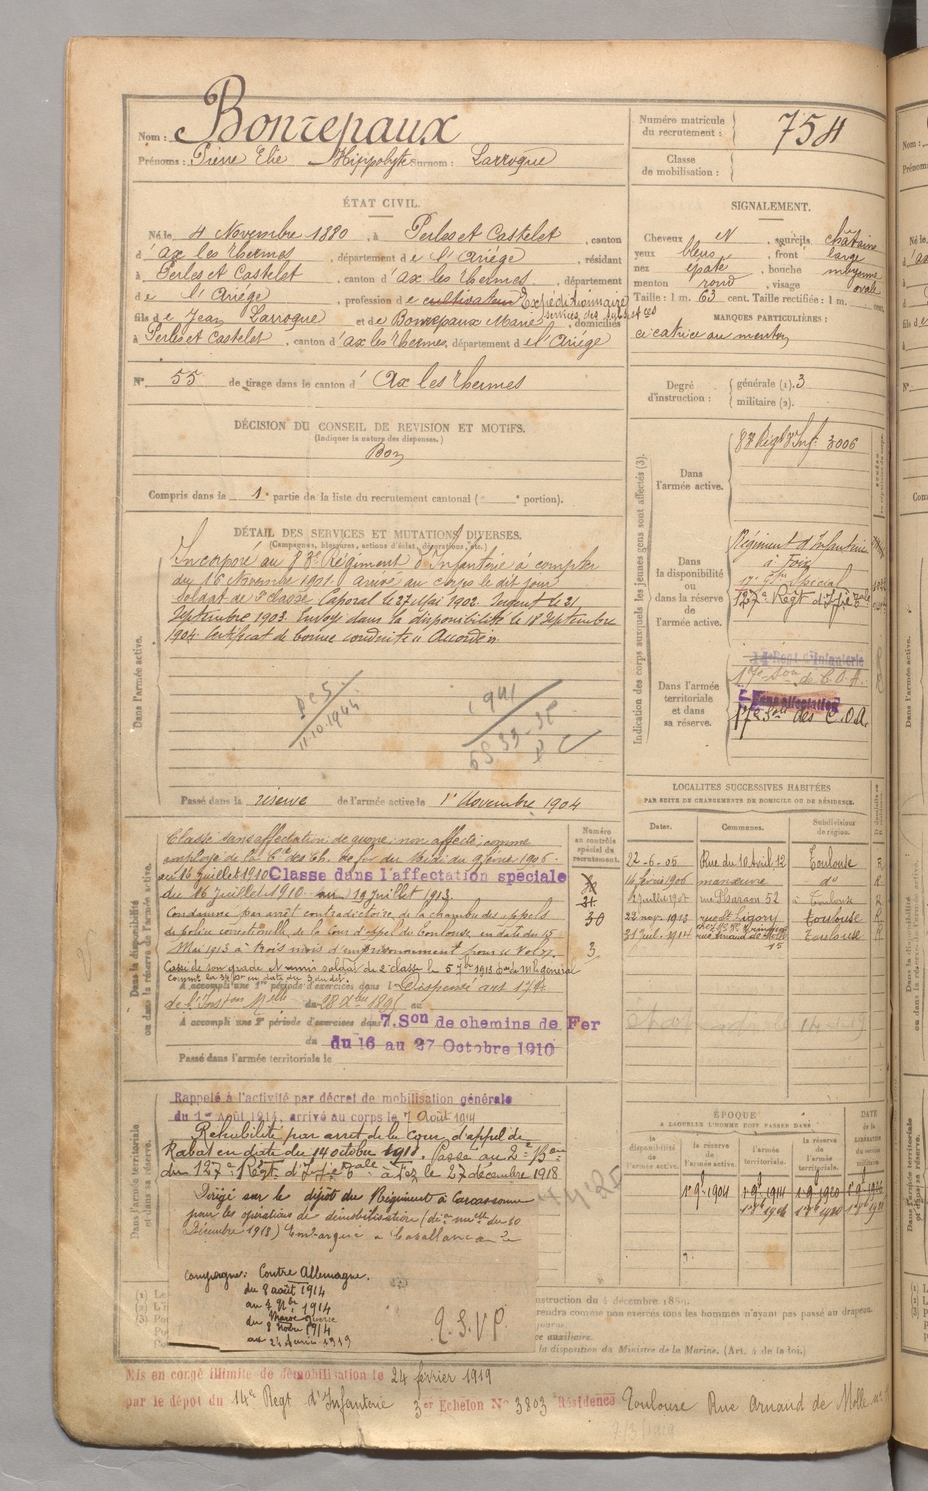 Nom : Bonrepaux
Prénoms : Pierre Elie Hippolyte Surnom : Larroque
Numéro matricule du recrutement : 754
Classe de mobilisation :
ÉTAT CIVIL.
Né le 4 Novembre 1880, à Perles et Castelet, canton
d'ax les Thermes, département de l'Ariége, résidant
à Perles et Castelet, canton d'ax les Thermes, département
de l'Ariége, profession de cultivateur Expéditionnaire
fils de Jean Larroque et de Bonrepaux Marie, domiciliés
à Perles et Castelet, canton d'ax les Thermes, département de l'Ariége
N° 55 de tirage dans le canton d' Ax les Thermes
SIGNALEMENT.
Cheveux N, sourcils châtains
yeux bleus, front large
nez épaté, bouche moyenne
menton rond, visage ovale
Taille : 1 m. 63 cent. Taille rectifiée : 1 m. cent.
MARQUES PARTICULIÈRES :
cicatrice au menton
Degré d'instruction : générale (1). 3
militaire (2).
DÉCISION DU CONSEIL DE REVISION ET MOTIFS.
(Indiquer la nature des dispenses.)
Bon
Compris dans la 1e partie de la liste du recrutement cantonal ( e portion).
DÉTAIL DES SERVICES ET MUTATIONS DIVERSES.
(Campagnes, blessures, actions d'éclat, décorations, etc.)
Incorporé au 83e Régiment d'Infanterie à compter
du 16 Novembre 1901. arrivé au corps le dit jour
Soldat de 2e classe Caporal le 27 Mai 1902. Sergent le 21
Septembre 1903. Envoyé dans la disponibilité le 18 Septembre
1904. Certificat de bonne conduite " Accordé "
11.10.1944
1941
Dans l'armée active.
Passé dans la réserve de l'armée active le 1er Novembre 1904
Indication des corps auxquels les jeunes gens sont affectés (3).
Dans l'armée active.
83e Régt d'Inf. 3006
Dans la disponibilité ou dans la réserve de l'armée active.
Régiment d'Infanterie
à Foix
127e Régt d'Infie Tale
Dans l'armée territoriale et dans sa réserve.
14e Régt d'Infanterie
17e Son de C.O.A.
Sans affectation
17e Son des C.O.A.
LOCALITÉS SUCCESSIVES HABITÉES
PAR SUITE DE CHANGEMENTS DE DOMICILE OU DE RÉSIDENCE.
Dates. Communes. Subdivisions de région.
22-6-05 Rue du 10 Avril, 12 Toulouse R
16 février 1906 manœuvre do R
rue Pharaon 52 à Toulouse R
22 mars 1913 rue St Ligory Toulouse R
31 Juil. 1914 rue Arnaud de Molle 15 Toulouse R
Numéro au contrôle spécial du recrutement.
30
3
Dans la disponibilité ou dans la réserve de l'armée active.
Classé sans affectation de guerre : non affecté, comme
employé de la Cie des Ch. de fer du Midi du 9 février 1906
au 16 juillet 1910 Classé dans l'affectation spéciale
du 16 juillet 1910 au 19 juillet 1913.
Condamné par arrêt contradictoire de la chambre des appels
de police correctionelle, de la Cour d'appel de Toulouse, en date du 15
Mai 1913 à trois mois d'emprisonnement pour " Vol ".
Cassé de son grade et remis soldat de 2e classe le 5 7bre 1913
A accompli une 1re période d'exercices dans l Dispensé art 174
de l'Inston Melle du 28 Xbre 1895 au
A accompli une 2e période d'exercices dans 7. Son de chemins de Fer
du du 16 au 27 Octobre 1910
Passé dans l'armée territoriale le
Dans l'armée territoriale et dans sa réserve.
Rappelé à l'activité par décret de mobilisation générale
du 1er Août 1914, arrivé au corps le 7 Août 1914
Réhabilité par arrêt de la Cour d'appel de
Rabat en date du 14 octobre 1918. Passé au 2e Bon
du 127e Régt d'Infie Tale à Fez le 27 décembre 1918
Dirigé sur le dépôt du Régiment à Carcassonne
pour les opérations de démobilisation (
Décembre 1918) Embarqué à Casablanca le
Campagne : Contre Allemagne.
du 8 août 1914
au 4 9bre 1914
Maroc guerre
du 8 Nobre 1914
au 24 1919
T.S.V.P.
ÉPOQUE
A LAQUELLE L'HOMME DOIT PASSER DANS
la disponibilité de l'armée active. la réserve de l'armée active. l'armée territoriale. la réserve de l'armée territoriale. DATE DE LA LIBÉRATION du service militaire.
1er 9bre 1904 1er 9bre 1914 1er 9bre 1920
instruction du 4 décembre 1889.
prendra comme non exercés tous les hommes n'ayant pas passé au drapeau.
ce auxiliaire.
la disposition du Ministre de la Marine. (Art. 4 de la loi.)
Mis en congé illimité de démobilisation le 24 février 1919
par le dépôt du 14e Régt d'Infanterie 3er Echelon N° 3803 Résidence Toulouse Rue Arnaud de Molle
7/3/1919